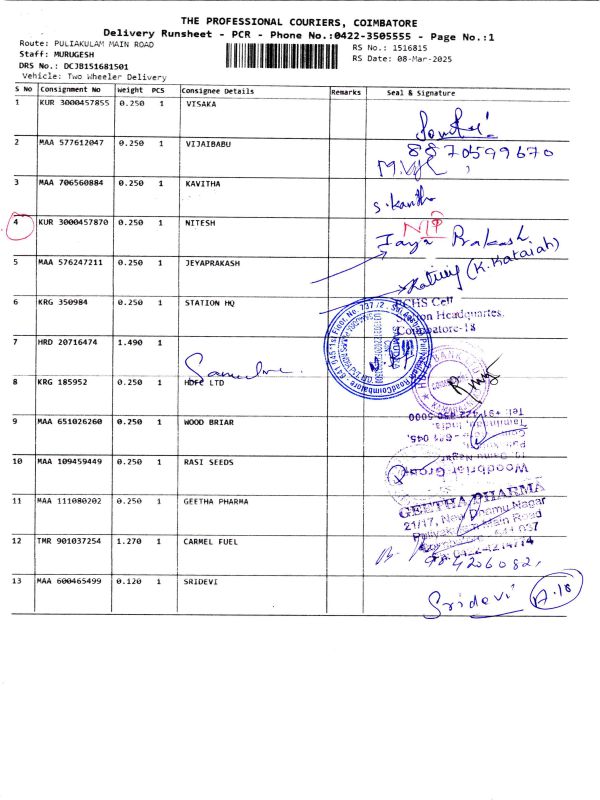 THE PROFESSIONAL COURIERS, COIMBATORE
Delivery Runsheet - PCR - Phone No.:0422-3505555 - Page No.:1
Route: PULIAKULAM MAIN ROAD
RS No.: 1516815
Staff: MURUGESH
RS Date: 08-Mar-2025
DRS No.: DCJB151681501
Vehicle: Two Wheeler Delivery
S No Consignment No Weight PCS Consignee Details Remarks Seal & Signature
1 KUR 3000457855 0.250 1 VISAKA
2 MAA 577612047 0.250 1 VIJAIBABU 8870599670
3 MAA 706560884 0.250 1 KAVITHA S. Kavitha
4 KUR 3000457870 0.250 1 NITESH NIP
Jaya Prakash
5 MAA 576247211 0.250 1 JEYAPRAKASH
(K. Kataiah)
6 KRG 350984 0.250 1 STATION HQ ECHS Cell
Station Headquartes,
Coimbatore-18
7 HRD 20716474 1.490 1
8 KRG 185952 0.250 1 HDFC LTD
9 MAA 651026260 0.250 1 WOOD BRIAR
Tel: +91-422 450 5000
Tamilnadu, India.
10 MAA 109459449 0.250 1 RASI SEEDS
Woodbriar Group
11 MAA 111080202 0.250 1 GEETHA PHARMA GEETHA PHARMA
21/17, New Dhamu Nagar
Main Road
12 TMR 901037254 1.270 1 CARMEL FUEL
13 MAA 600465499 0.120 1 SRIDEVI
Sridevi